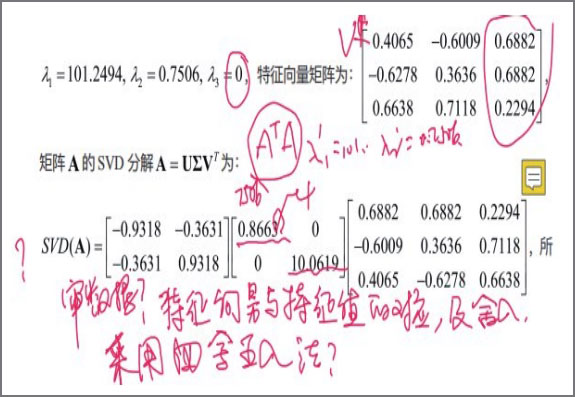 V阵
λ₁ = 101.2494, λ₂ = 0.7506, λ₃ = 0, 特征向量矩阵为:
0.4065 −0.6009 0.6882
−0.6278 0.3636 0.6882
0.6638 0.7118 0.2294
,
AᵀA λ₁' = 101.
矩阵 A 的 SVD 分解 A = UΣVᵀ 为:
SVD(A) =
−0.9318 −0.3631
−0.3631 0.9318
0.8663 0
0 10.0619
0.6882 0.6882 0.2294
−0.6009 0.3636 0.7118
0.4065 −0.6278 0.6638
, 所
?
审数据? 特征向量与特征值的对应, 及舍入.
采用四舍五入法?